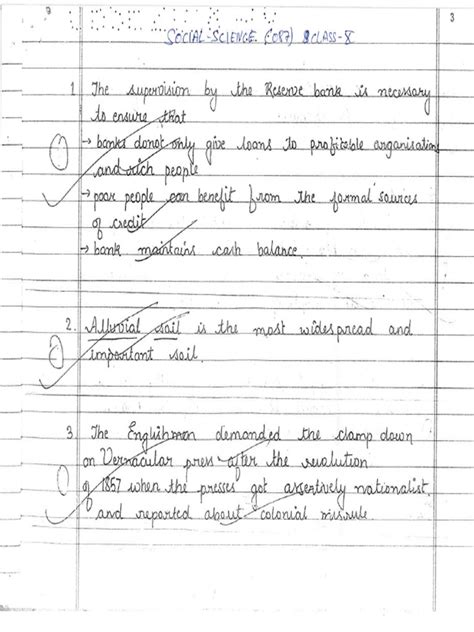 3
SOCIAL-SCIENCE (087) CLASS-8
1 The supervision by the Reserve bank is necessary
to ensure that
→ banks donot only give loans to profitable organisations
and rich people
→ poor people can benefit from the formal sources
of credit
→ bank maintains cash balance.
1
2. Alluvial soil is the most widespread and
important soil.
1
3. The Englishmen demanded the clamp down
on Vernacular press after the revolution
of 1857 when the presses got assertively nationalist.
and reported about colonial misrule.
1